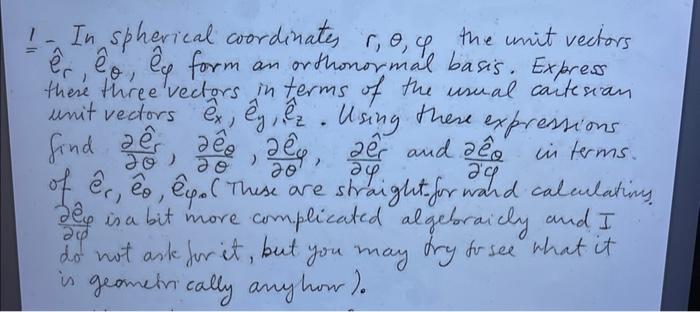 1- In spherical coordinates r, θ, φ the unit vectors
ê_r, ê_θ, ê_φ form an orthonormal basis. Express
these three vectors in terms of the usual cartesian
unit vectors ê_x, ê_y, ê_z. Using these expressions
find ∂ê_r/∂θ, ∂ê_θ/∂θ, ∂ê_φ/∂θ, ∂ê_r/∂φ and ∂ê_θ/∂φ in terms
of ê_r, ê_θ, ê_φ. (These are straightforward calculations
∂ê_φ/∂φ is a bit more complicated algebraicly and I
do not ask for it, but you may try to see what it
is geometrically anyhow).